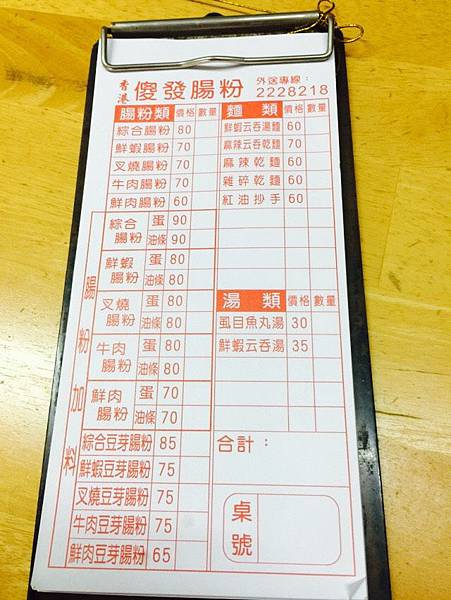 香港 傻發腸粉 外送專線：
2228218
腸粉類 價格 數量
綜合腸粉 80
鮮蝦腸粉 70
叉燒腸粉 70
牛肉腸粉 70
鮮肉腸粉 60
腸粉加料
綜合腸粉 蛋 90
油條 90
鮮蝦腸粉 蛋 80
油條 80
叉燒腸粉 蛋 80
油條 80
牛肉腸粉 蛋 80
油條 80
鮮肉腸粉 蛋 70
油條 70
綜合豆芽腸粉 85
鮮蝦豆芽腸粉 75
叉燒豆芽腸粉 75
牛肉豆芽腸粉 75
鮮肉豆芽腸粉 65
麵類 價格 數量
鮮蝦云吞湯麵 60
麻辣云吞乾麵 70
麻辣乾麵 60
雜碎乾麵 60
紅油抄手 60
湯類 價格 數量
虱目魚丸湯 30
鮮蝦云吞湯 35
合計：
桌號